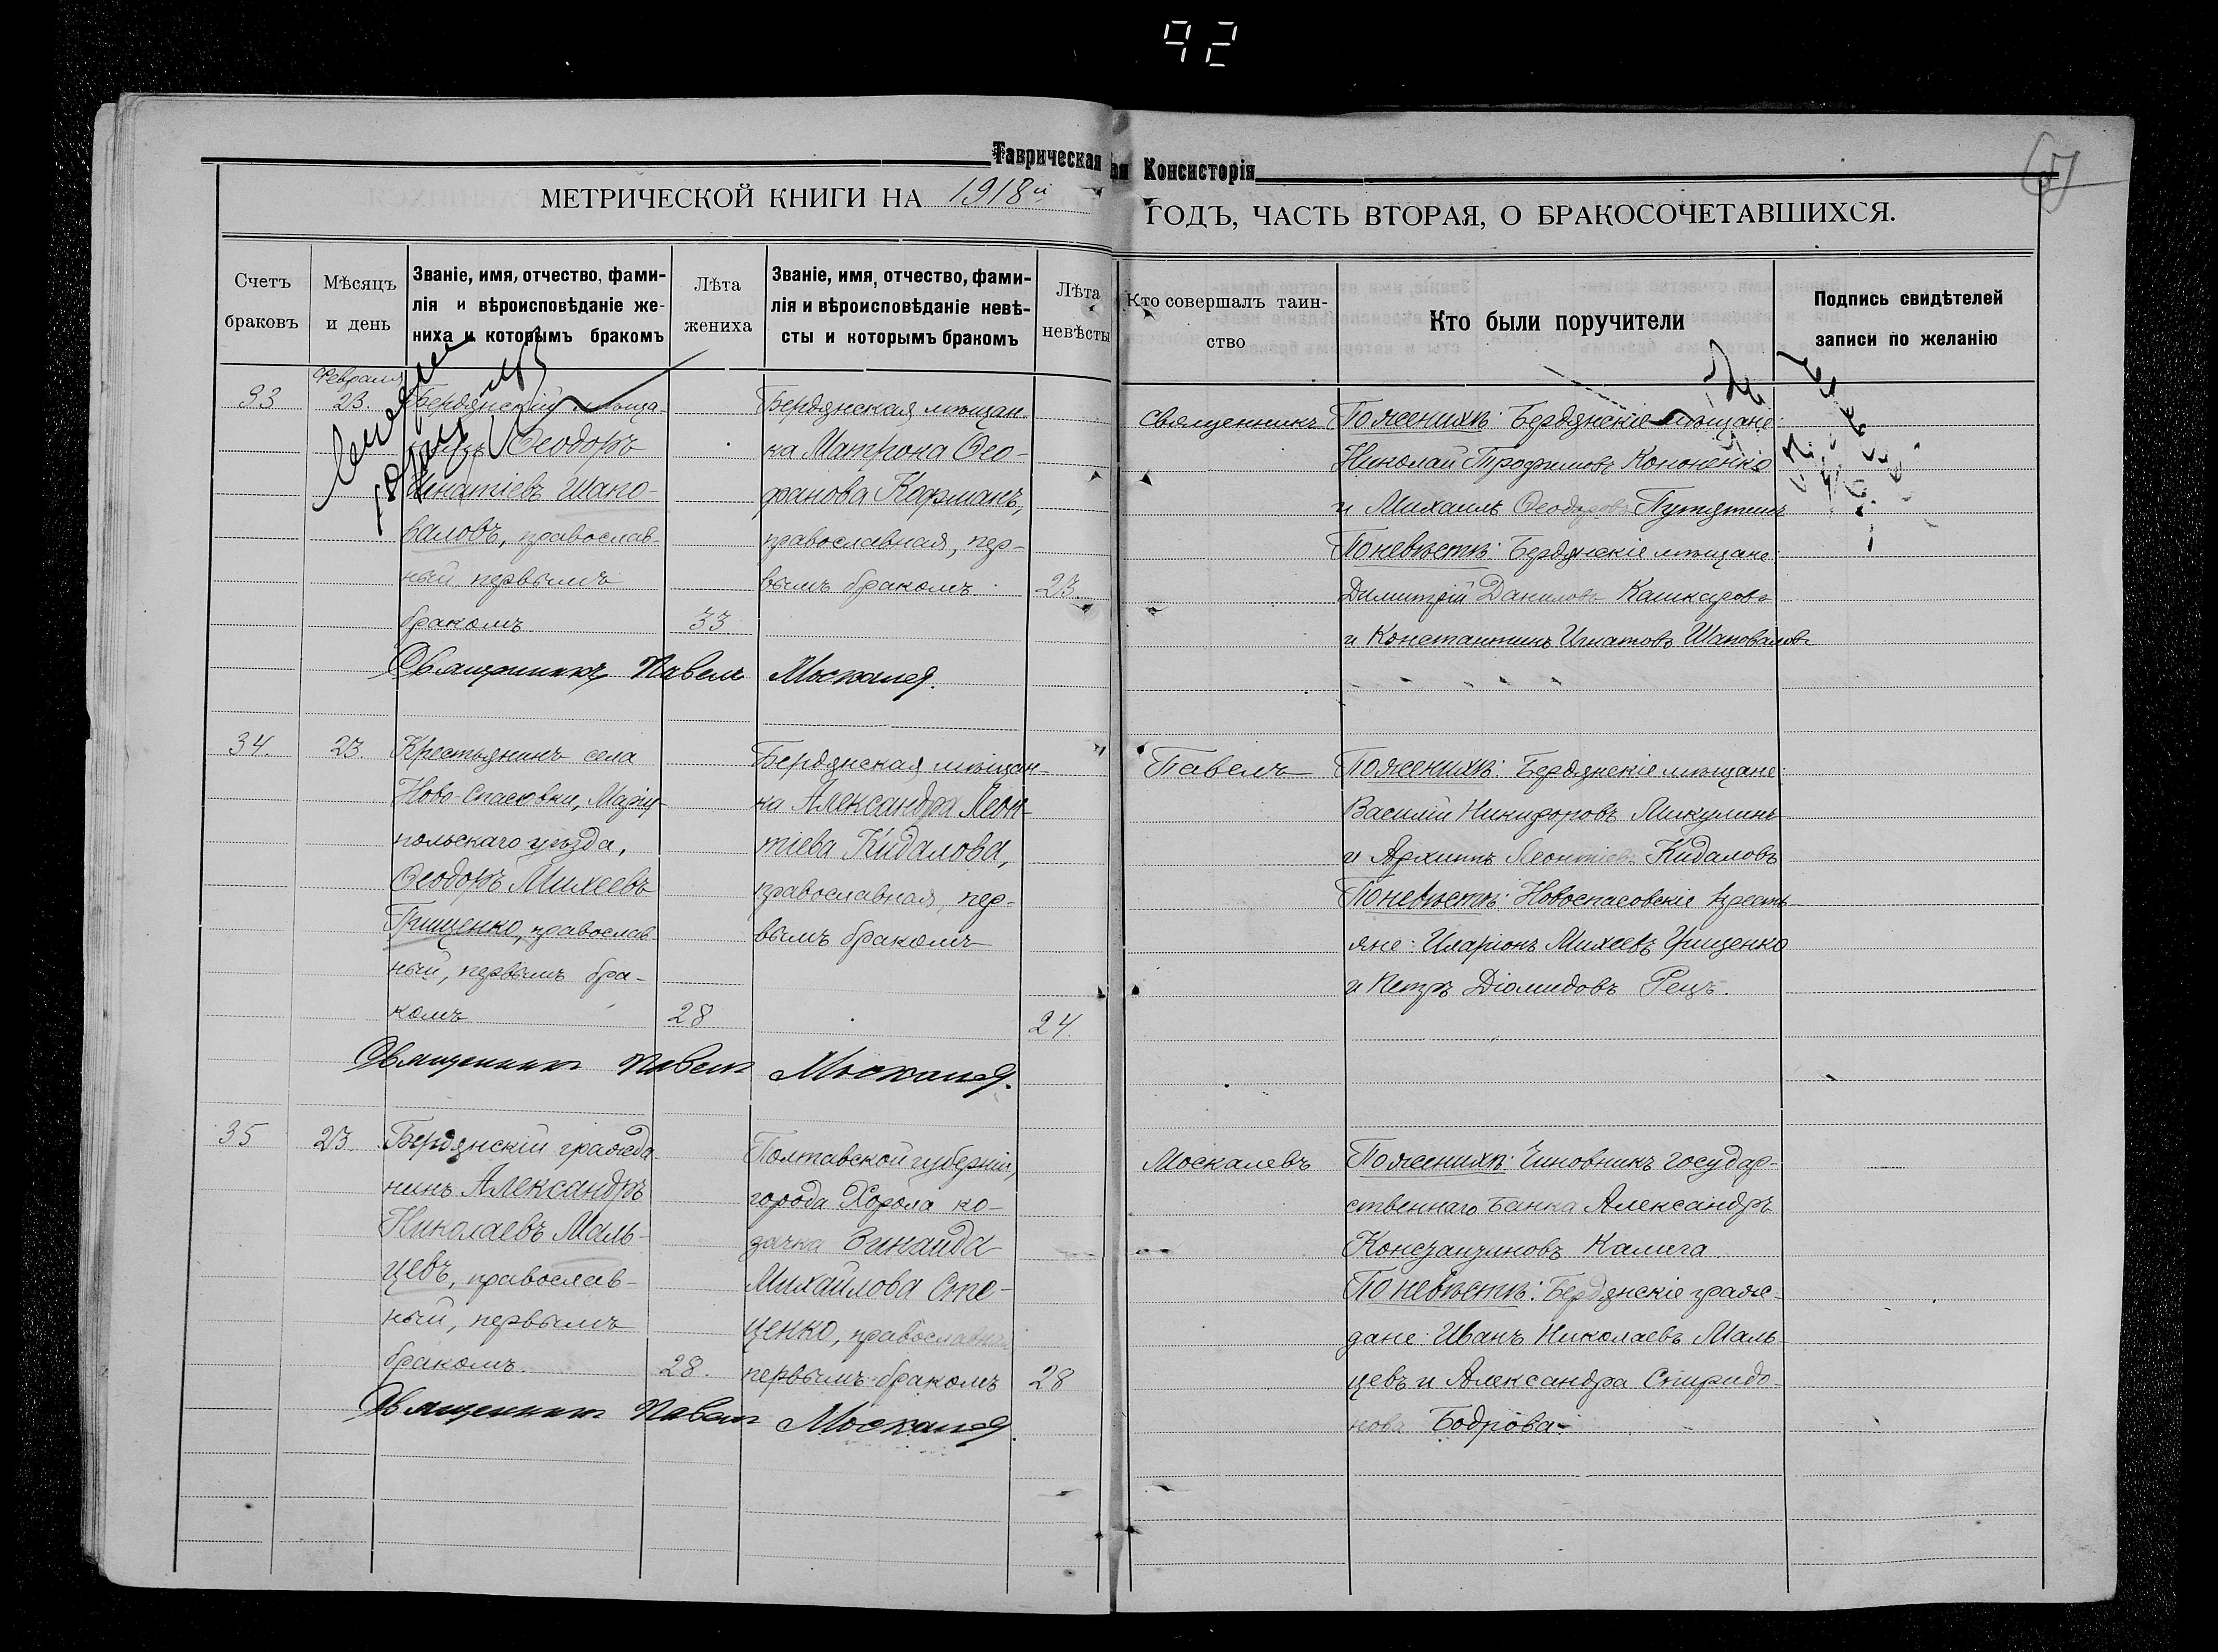 92
Таврическая Консисторія
МЕТРИЧЕСКОЙ КНИГИ НА 1918й
ГОДЪ, ЧАСТЬ ВТОРАЯ, О БРАКОСОЧЕТАВШИХСЯ.
Счетъ браковъ
Мѣсяцъ и день
Званіе, имя, отчество, фами-
лія и вѣроисповѣданіе же-
ниха и которымъ бракомъ
Лѣта жениха
Званіе, имя, отчество, фами-
лія и вѣроисповѣданіе невѣ-
сты и которымъ бракомъ
Лѣта невѣсты
Кто совершалъ таин-
ство
Кто были поручители
Подпись свидѣтелей
записи по желанію
33
Февраля
23.
Бердянскій мѣща-
Ѳеодоръ
Игнатіевъ Шапо-
валовъ, православ-
ный, первымъ
бракомъ
33
Бердянская мѣщан-
ка Матрона Ѳео-
фанова Кофманъ,
православная, пер-
вымъ бракомъ
23.
Священникъ
По женихѣ: Бердянскіе мѣщане:
Николай Трофимовъ Кононенко
и Михаилъ Ѳеодоровъ Путятинъ
По невѣстѣ: Бердянскіе мѣщане:
Димитрій Даниловъ Кашкаровъ
и Константинъ Игнатовъ Шаповаловъ
Священникъ Павелъ Москалев
34.
23.
Крестьянинъ села
Ново-Спасовки, Маріу-
польскаго уѣзда,
Ѳеодоръ Михеевъ
Грищенко, православ-
ный, первымъ бра-
комъ
28
Бердянская мѣщан-
ка Александра Леон-
тіева Кидалова,
православная, пер-
вымъ бракомъ
24.
Павелъ
По женихѣ: Бердянскіе мѣщане:
Василій Никифоровъ Микулинъ
и Архипъ Леонтіевъ Кидаловъ
По невѣстѣ: Новоспасовскіе кресть-
яне: Иларіонъ Михеевъ Грищенко
и Петръ Діомидовъ Рецъ.
Священникъ Павелъ Москалев.
35
23.
Бердянскій гражда-
нинъ Александръ
Николаевъ Маль-
цевъ, православ-
ный, первымъ
бракомъ.
28.
Полтавской губерніи,
города Хорола ко-
зачка Зинаида
Михайлова Сте-
ценко, православная
первымъ бракомъ
28
Москалевъ
По женихѣ: Чиновникъ государ-
ственнаго Банка Александръ
Константиновъ Калига
По невѣстѣ: Бердянскіе граж-
дане: Иванъ Николаевъ Маль-
цевъ и Александра Спиридо-
нова Бодрова
Священникъ Павелъ Москалев.